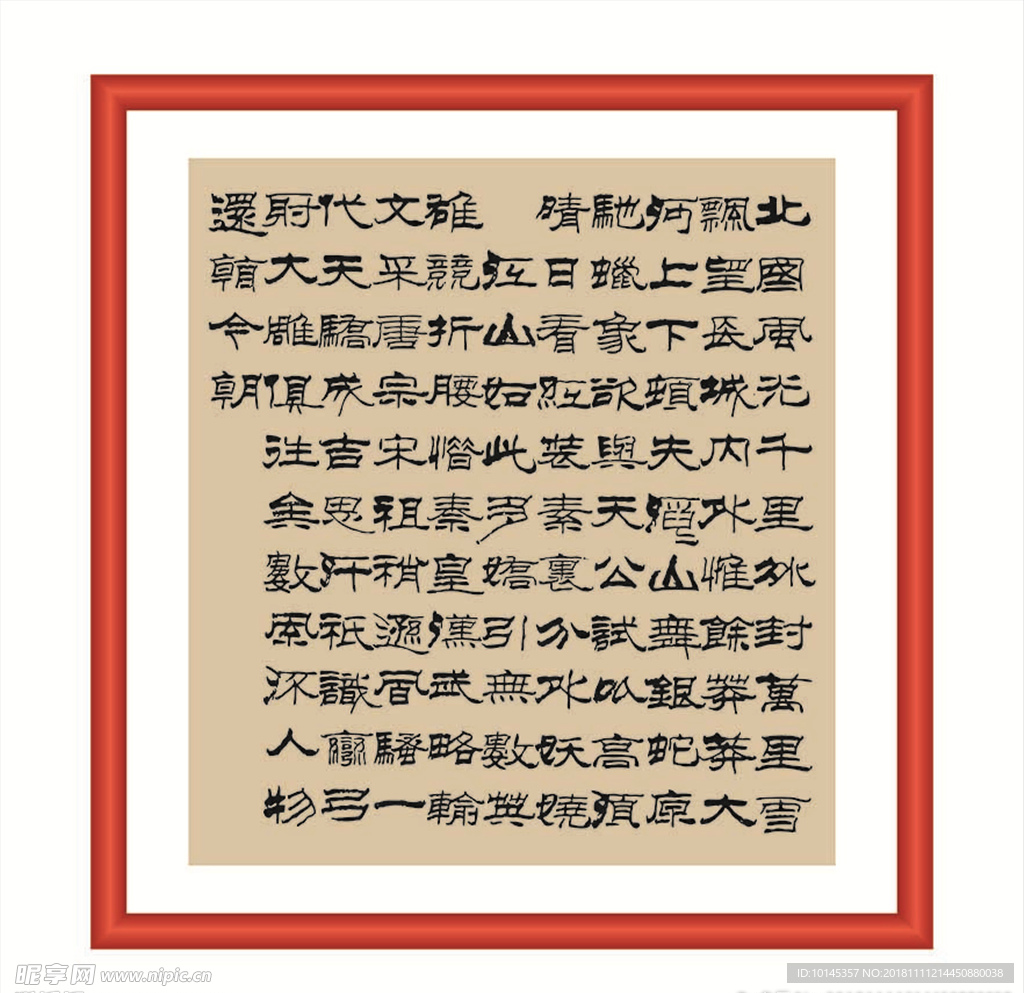 北國風光千里冰封萬里雪
飄望長城內外惟餘莽莽大
河上下頓失滔〻山舞銀蛇原
馳蠟象欲與天公試比高須
晴日看紅裝素裹分外妖嬈
江山如此多嬌引無數英
雄競折腰惜秦皇漢武略輸
文采唐宗宋祖稍遜風騷一
代天驕成吉思汗祇識彎弓
射大雕俱往矣數風流人物
還看今朝
昵享网 www.nipic.cn
ID:10145357 NO:20181111214450880038